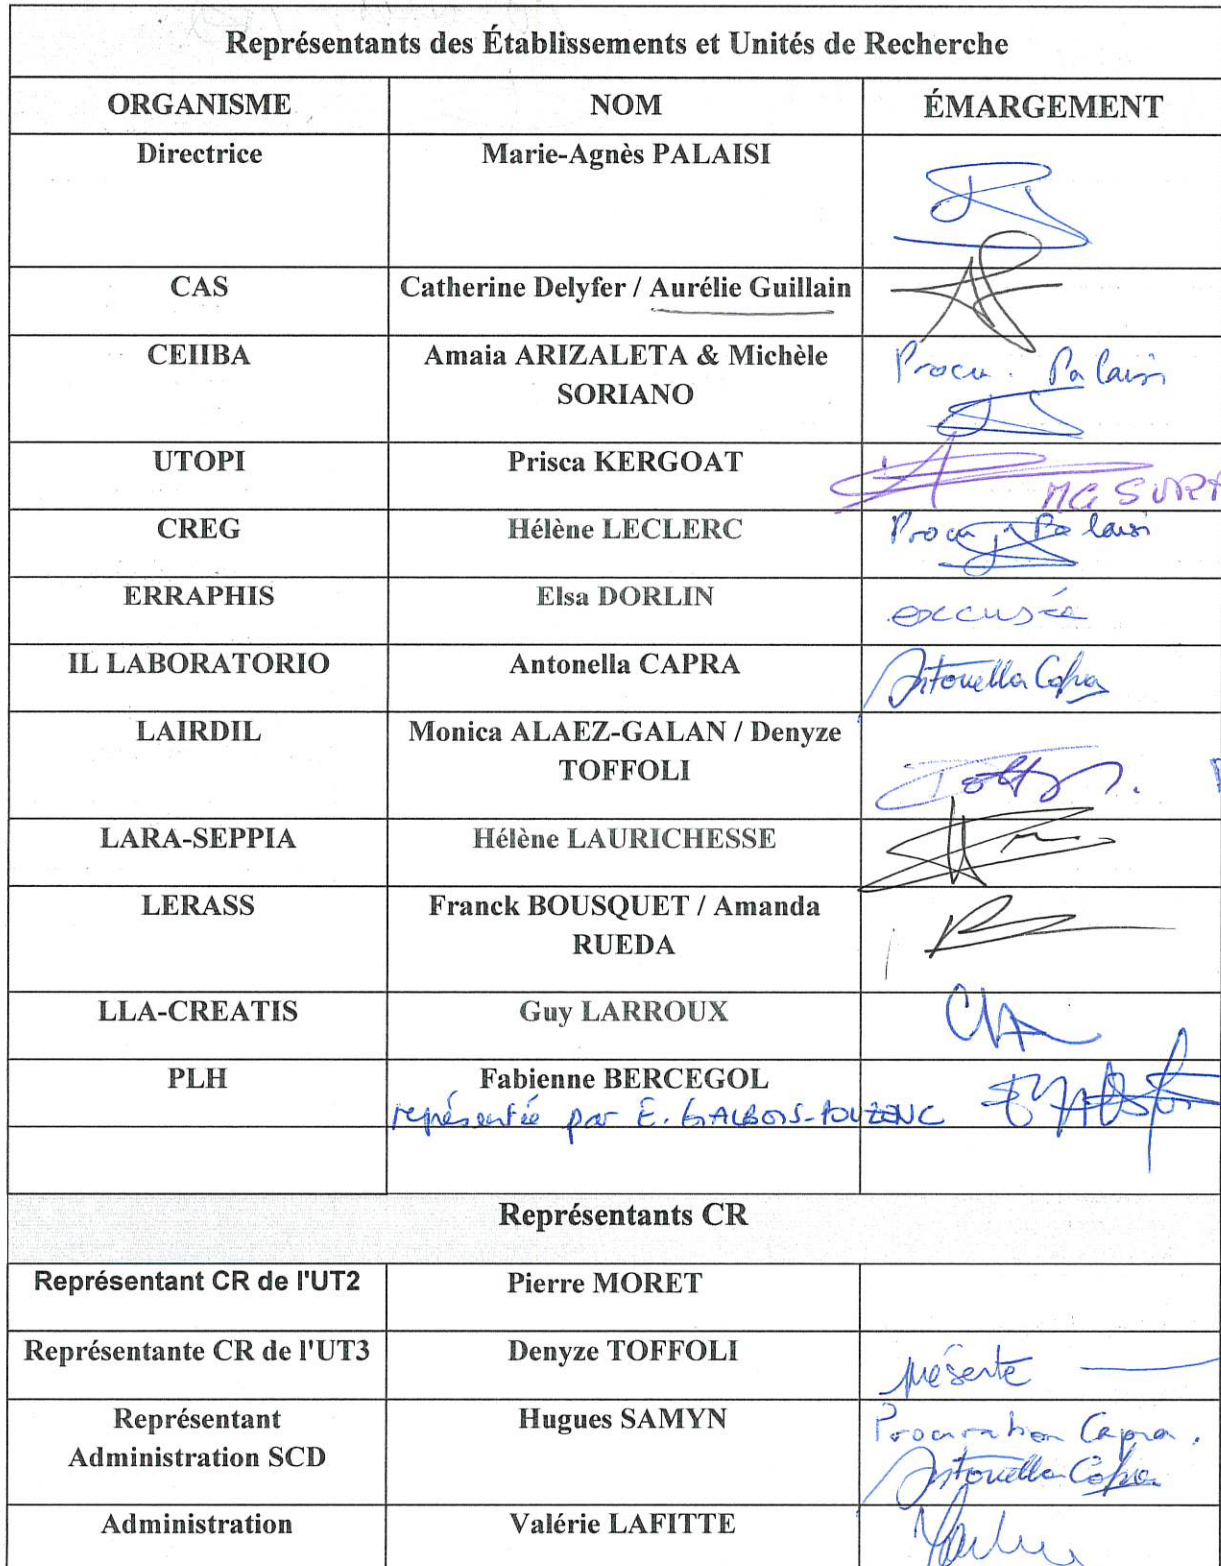 Représentants des Établissements et Unités de Recherche
ORGANISME NOM ÉMARGEMENT
Directrice Marie-Agnès PALAISI
CAS Catherine Delyfer / Aurélie Guillain
CEIIBA Amaia ARIZALETA & Michèle Procu. Palaisi
SORIANO
UTOPI Prisca KERGOAT
CREG Hélène LECLERC Procu Palaisi
ERRAPHIS Elsa DORLIN excusée
IL LABORATORIO Antonella CAPRA Antonella Capra
LAIRDIL Monica ALAEZ-GALAN / Denyze
TOFFOLI
LARA-SEPPIA Hélène LAURICHESSE
LERASS Franck BOUSQUET / Amanda
RUEDA
LLA-CREATIS Guy LARROUX
PLH Fabienne BERCEGOL
représentée par E. GALBOIS-POUZENC
Représentants CR
Représentant CR de l'UT2 Pierre MORET
Représentante CR de l'UT3 Denyze TOFFOLI présente
Représentant Hugues SAMYN Procuration Capra.
Administration SCD Antonella Capra
Administration Valérie LAFITTE